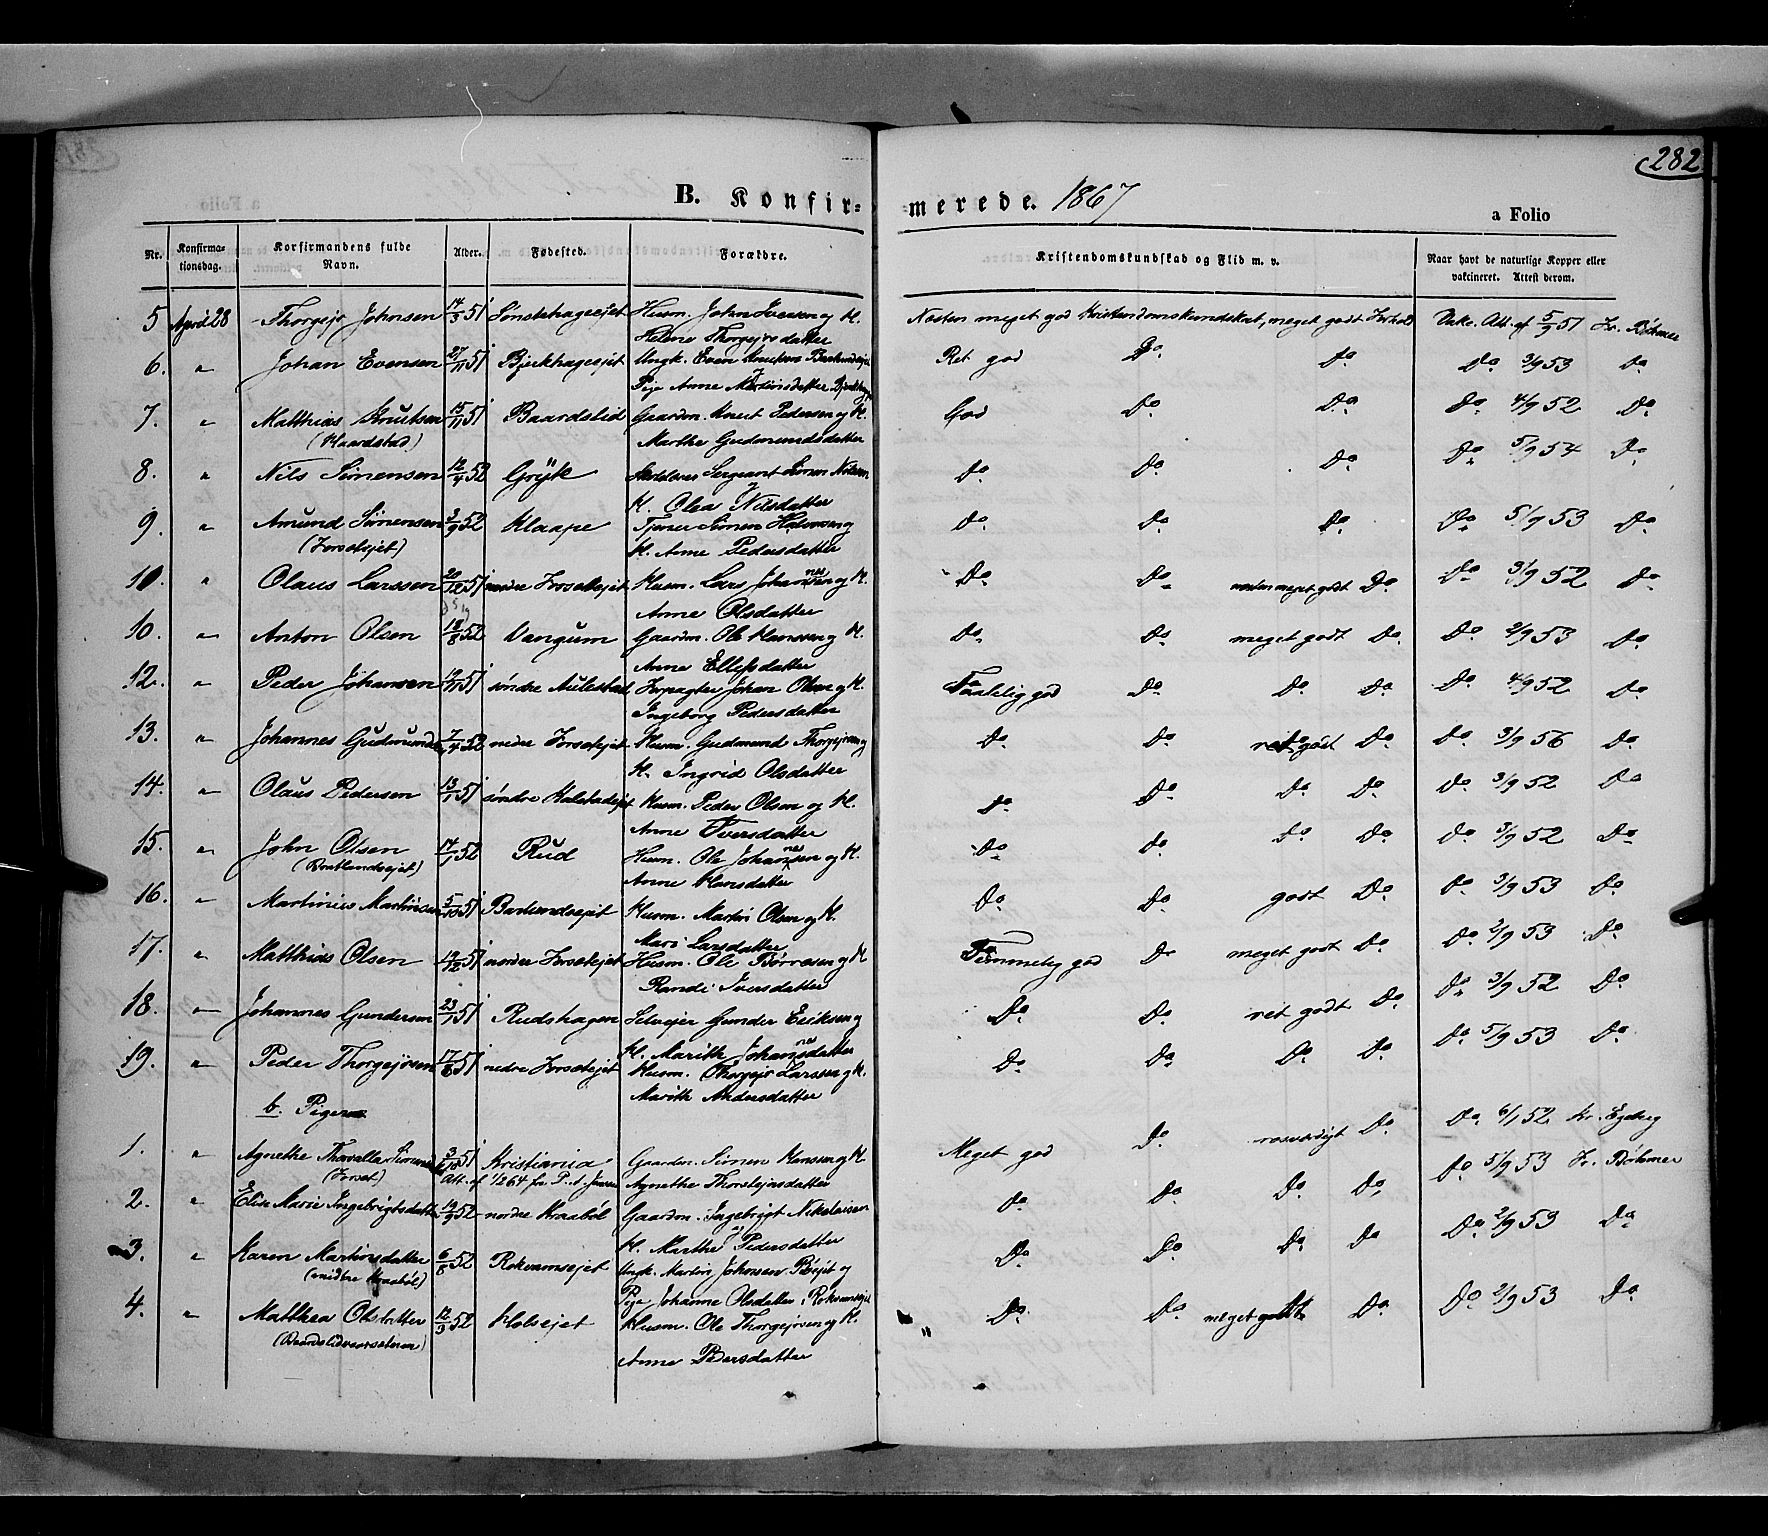 282
B. Konfir= =merede. 1867
a Folio
Nr. Konfirma-tionsdag. Korfirmandens fulde Navn. Alder. Fødested. Forældre. Kristendomskundskab og Flid m. v. Naar havt de naturlige Kopper eller vakcineret. Attest derom.
5 April 28 Thorgejr Johnsen 14/3 51 Sønstehageejet Husm. John Iversen og K. Næsten meget god Kristendomskundskab, meget godt Forhold Vakc. Att. af 5/9 51 Fr. Bøhmer
Helene Thorgejrsdatter
6. " Johan Evensen 27/11 51 Bjerkhageejet Ungk. Even Knutsen Ret god Do. Do. Do. 3/9 53 Do.
Pige Anne Martinsdatter
7. " Matthias Knutsen 15/11 51 Baardslid Gaardm. Knut Pedersen og K. God Do. Do. Do. 4/9 52 Do.
(Haardstad) Marthe Gudmundsdatter
8. " Nils Simensen 12/4 52 Grÿte Sergeant Simen Nilsen Do. Do. Do. Do. 5/9 54 Do.
K. Olea Nilsdatter
9. " Amund Simensen 3/9 52 Klaape Tjener Simen Halvorsen og Do. Do. Do. Do. 5/9 53 Do.
(Forsetejet) K. Anne Pedersdatter
10. " Olaus Larssen 20/12 51 nordre Forsetejet Husm. Lars Johannesen og K. Do. Do. næsten meget godt Do. Do. 3/9 52 Do.
Anne Olsdatter
10. " Anton Olsen 18/8 52 Vangum Gaardm. Ole Hansen og K. Do. Do. meget godt Do. Do. 2/9 53 Do.
Anne Ellefsdatter
12. " Peder Johansen 14/11 51 søndre Aulestad Forpagter Johan Olsen og K. Taalelig god Do. Do. Do. Do. 4/9 52 Do.
Ingeborg Pedersdatter
13. " Johannes Gudmunds. 7/4 52 nedre Forsetejet Husm. Gudmund Thorgejrsen og Do. Do. ret godt Do. Do. 3/9 56 Do.
K. Ingrid Olsdatter
14. " Olaus Pedersen 13/1 51 søndre Kalstadejet Husm. Peder Olsen og K. Do. Do. Do. Do. Do. 3/9 52 Do.
Anne Iversdatter
15. " John Olsen 14/1 52 Rud Husm. Ole Johannesen og K. Do. Do. Do. Do. Do. 3/9 52 Do.
(Bratlandsejet) Anne Hansdatter
16. " Martinius Martinsen 5/10 51 Barlundsejet Husm. Martin Olsen og K. Do. Do. godt Do. Do. 3/9 53 Do.
Mari Larsdatter
17. " Matthias Olsen 14/12 51 nordre Forsetejet Husm. Ole Børresen og K Temmelig god Do meget godt Do. Do. 2/9 53 Do.
Randi Iversdatter
18. " Johannes Gundersen 23/1 51 Rudshagen Selvejer Gunder Eriksen og Do. Do. ret godt Do. Do. 3/9 52 Do.
K. Marith Johannesdatter
19. " Peder Thorgejrsen 17/6 51 nedre Forsetejet Husm. Thorgejr Larssen og K. Do. Do. Do. Do. Do. 5/9 53 Do.
Marith Andersdatter
b. Piger
1. " Agnethe Thorvalla Simens. 3/10 51 Kristiania Gaardm. Simen Hansen og K. Meget god Do. rosværdigt Do. Do. 6/1 52 Kr. Egeberg
(Forset) Att. af 1/2 64 fr. P. t. Jensen Agnethe Thorstejnsdatter
2. " Elise Marie Ingebrigtsdatter 19/9 52 nordre Kraabøl Gaardm. Ingebrigt Nikolaisen Do. Do. Do. Do. Do. 5/9 53 Fr. Bøhmer
K. Marthe Pedersdatter
3. " Karen Martinsdatter 6/8 52 Rokvamsejet Ungk. Martin Johnsen og Do. Do. Do. Do Do. 2/9 53 Do.
(midtre Kraabøl) Pige Johanne Olsdatter, Rokvamsejet
4. " Matthea Olsdatter 12/3 52 Holsejet Husm. Ole Thorgejrsen og K. Do. Do. meget godt Do. Do. 2/9 53 Do.
(Baardslidvaarsæteren) Anne Pedersdatter